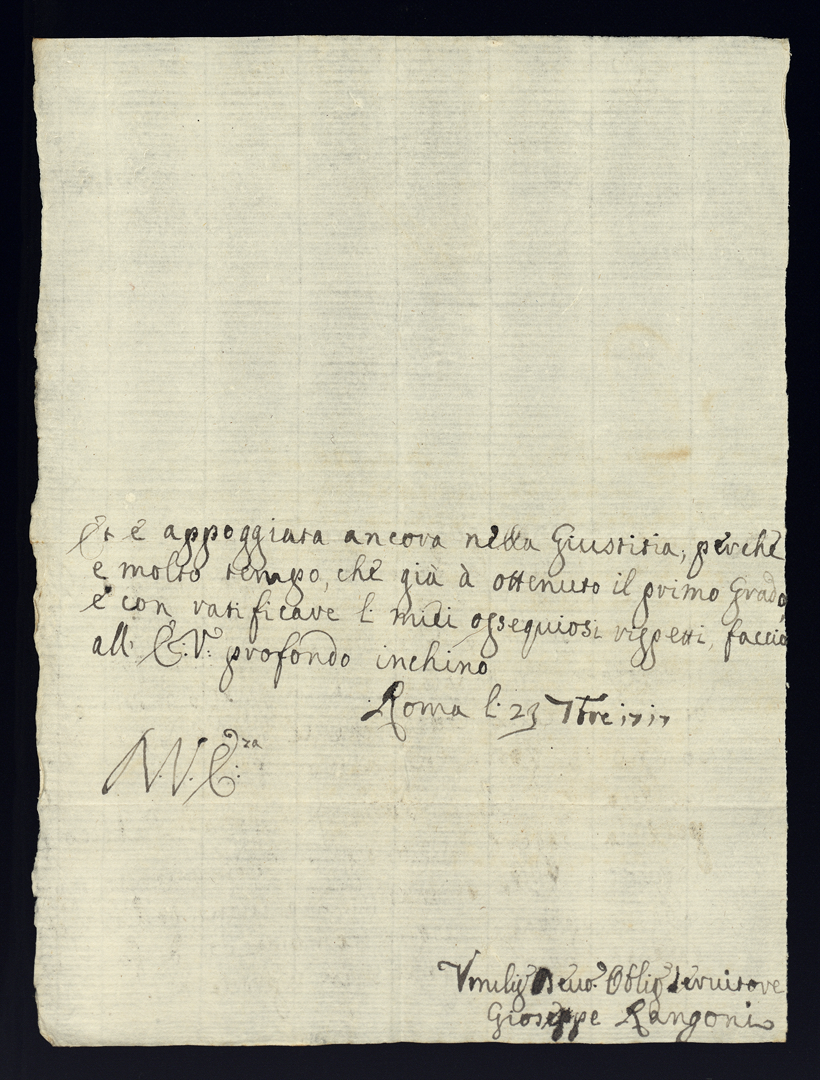 Et e appoggiata ancora nella Giustitia, perche
e molto tempo, che già à ottenuto il primo Grado,
e con ratificare li miei ossequiosi rispetti, faccio
all' E:V: profondo inchino
Roma li 23 7bre 1717
V. E:za
Vmiligo Deuo. Obligo Seruitore
Gioseppe Rangoni